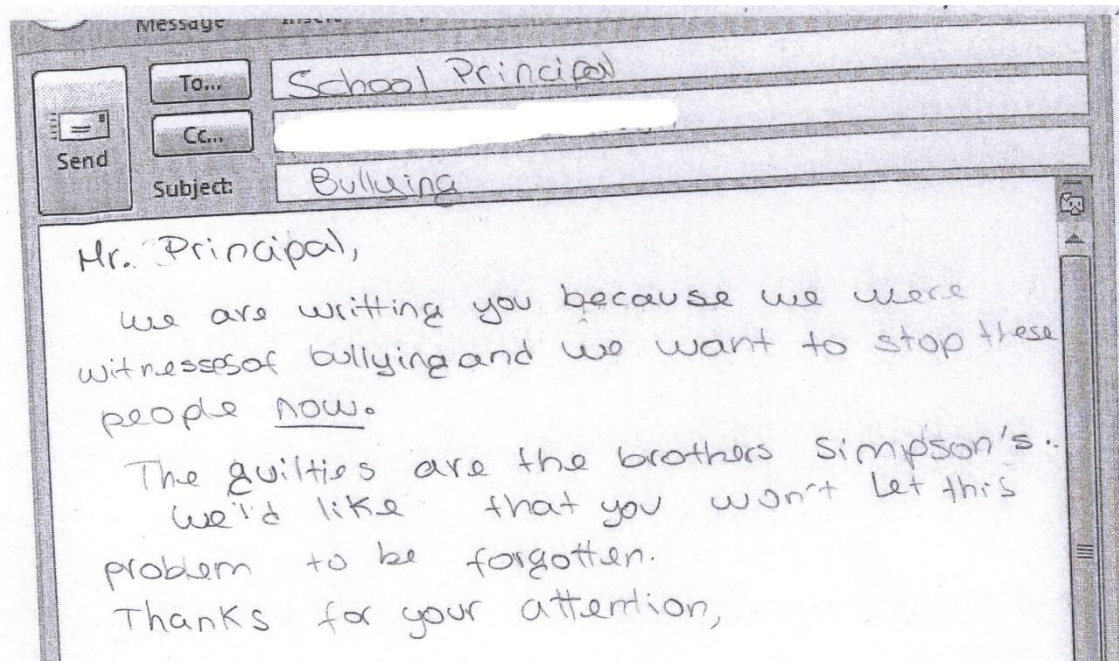 Message
To...
School Principal
Send
Cc...
Subject:
Bullying
Mr. Principal,
we are writting you because we were
witnessesof bullying and we want to stop these
people now.
The guilties are the brothers Simpson's.
We'd like that you won't let this
problem to be forgotten.
Thanks for your attention,